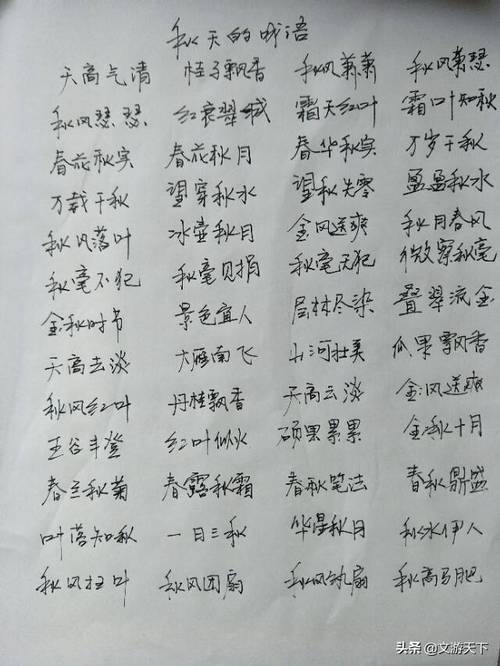 秋天的成语
天高气清 桂子飘香 秋风萧萧 秋风萧瑟
秋风瑟瑟 红衰翠减 霜天红叶 霜叶知秋
春花秋实 春花秋月 春华秋实 万岁千秋
万载千秋 望穿秋水 望秋先零 盈盈秋水
秋风落叶 冰壶秋月 金风送爽 秋月春风
秋毫不犯 秋毫见捐 秋毫无犯 微察秋毫
金秋时节 景色宜人 层林尽染 叠翠流金
天高云淡 大雁南飞 山河壮美 瓜果飘香
秋风红叶 丹桂飘香 天高云淡 金风送爽
五谷丰登 红叶似火 硕果累累 金秋十月
春兰秋菊 春露秋霜 春秋笔法 春秋鼎盛
叶落知秋 一日三秋 华星秋月 秋水伊人
秋风扫叶 秋风团扇 秋风纨扇 秋高马肥
头条 @文游天下